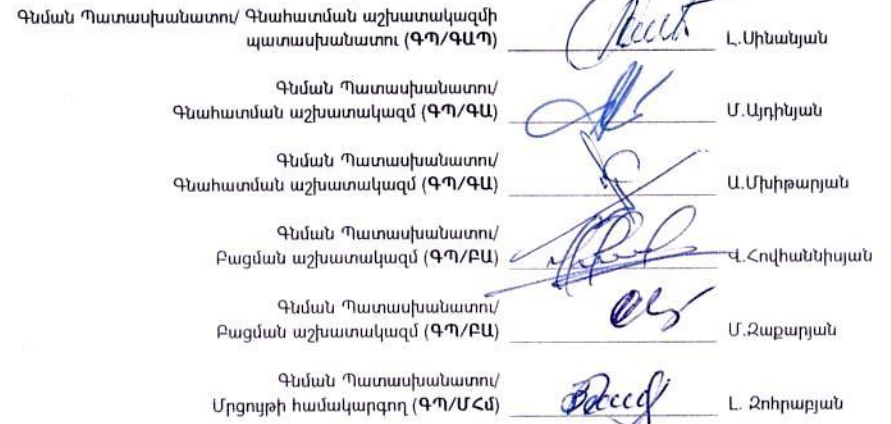 Գնման Պատասխանատու/ Գնահատման աշխատակազմի
պատասխանատու (ԳՊ/ԳԱՊ) Լ.Սինանյան
Գնման Պատասխանատու/
Գնահատման աշխատակազմ (ԳՊ/ԳԱ) Մ.Այդինյան
Գնման Պատասխանատու/
Գնահատման աշխատակազմ (ԳՊ/ԳԱ) Ա.Մխիթարյան
Գնման Պատասխանատու/
Բացման աշխատակազմ (ԳՊ/ԲԱ) Վ.Հովհաննիսյան
Գնման Պատասխանատու/
Բացման աշխատակազմ (ԳՊ/ԲԱ) Մ.Զաքարյան
Գնման Պատասխանատու/
Մրցույթի համակարգող (ԳՊ/ՄՀմ) Լ. Զոհրաբյան